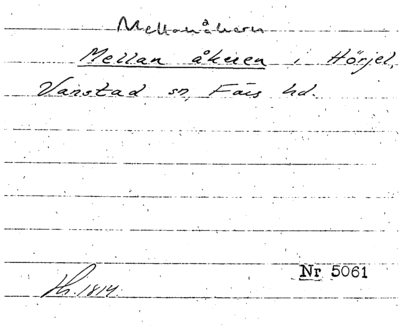 Mellanåkern
Mellan åkern i Hörjel,
Vanstad sn, Färs hd.
Nr 5061
1814.